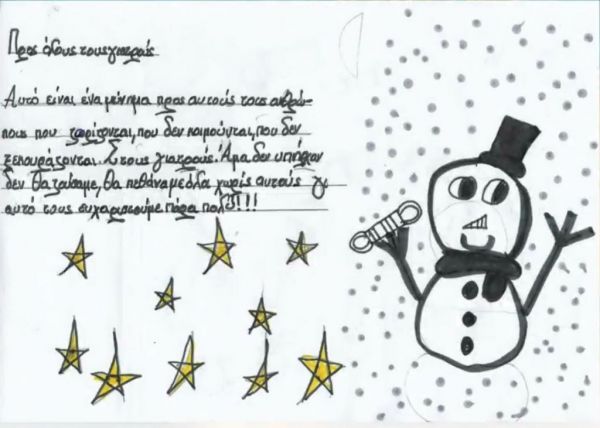 Προς όλους τους γιατρούς
Αυτό είναι ένα μήνημα προς αυτούς τους ανθρώ-
πους που που δεν κοιμούνται, που δεν
ξεκουράζονται. Στους γιατρούς. Άμα δεν υπήρχαν
δεν θα ζούσαμε, θα πεθάναμε όλοι χωρίς αυτούς γι
αυτό τους ευχαριστούμε πάρα πολύ!!!!